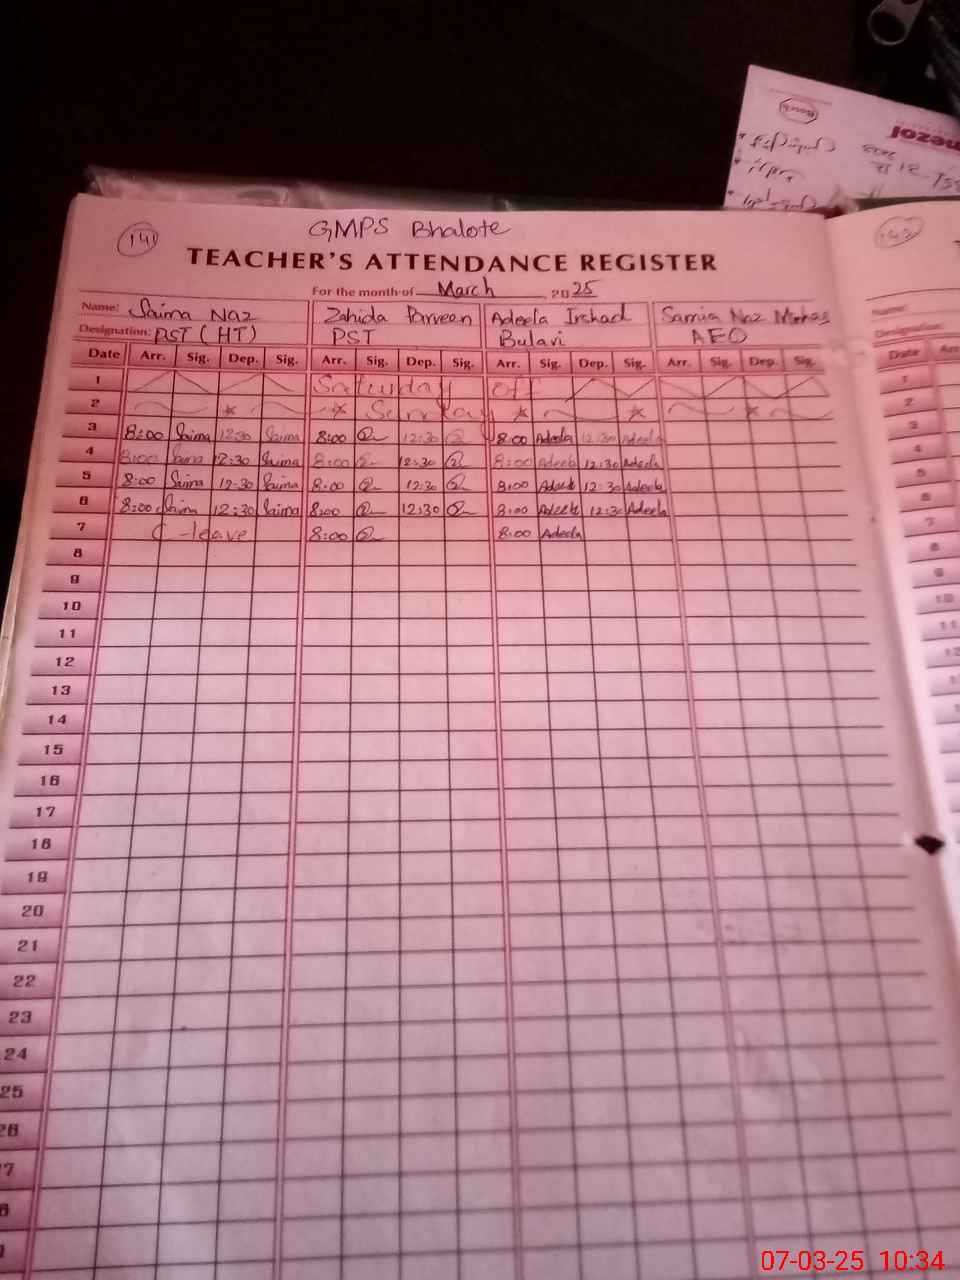 141
GMPS Bhalote
TEACHER'S ATTENDANCE REGISTER
For the month of March 2025
Name: Saima Naz Zahida Parveen Adeela Irshad Samia Naz Minhas
Designation: PST (HT) PST Bulavi AEO
Date Arr. Sig. Dep. Sig. Arr. Sig. Dep. Sig. Arr. Sig. Dep. Sig. Arr. Sig. Dep. Sig.
1 Saturday off
2 Sunday
3 8:00 Saima 12:30 Saima 8:00 12:30 8:00 Adeela 12:30 Adeela
4 8:00 Saima 12:30 Saima 8:00 12:30 8:00 Adeela 12:30 Adeela
5 8:00 Saima 12:30 Saima 8:00 12:30 8:00 Adeela 12:30 Adeela
6 8:00 Saima 12:30 Saima 8:00 12:30 8:00 Adeela 12:30 Adeela
7 C-leave 8:00 8:00 Adeela
8
9
10
11
12
13
14
15
16
17
18
19
20
21
22
23
24
25
26
7
8
142
Name:
Designation:
Date
1
2
3
4
5
6
7
8
9
10
11
12
07-03-25 10:34